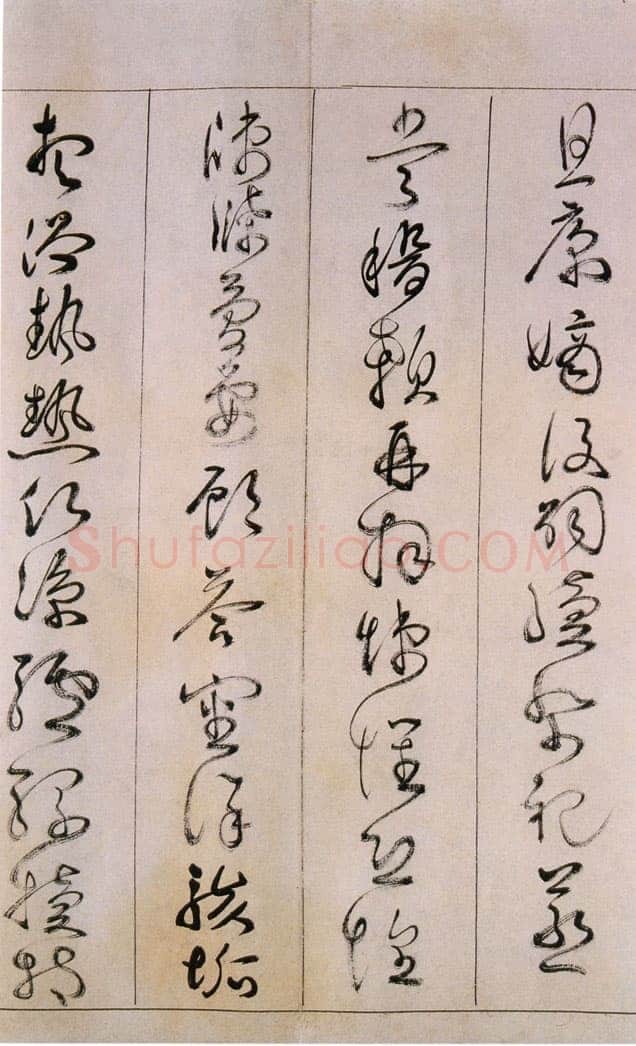 且康嫡後嗣續祭祀蒸
嘗稽顙再拜悚懼恐惶
牋牒簡要顧答審詳骸垢
想浴執熱願涼驢騾犢特
Shufaziliao.COM